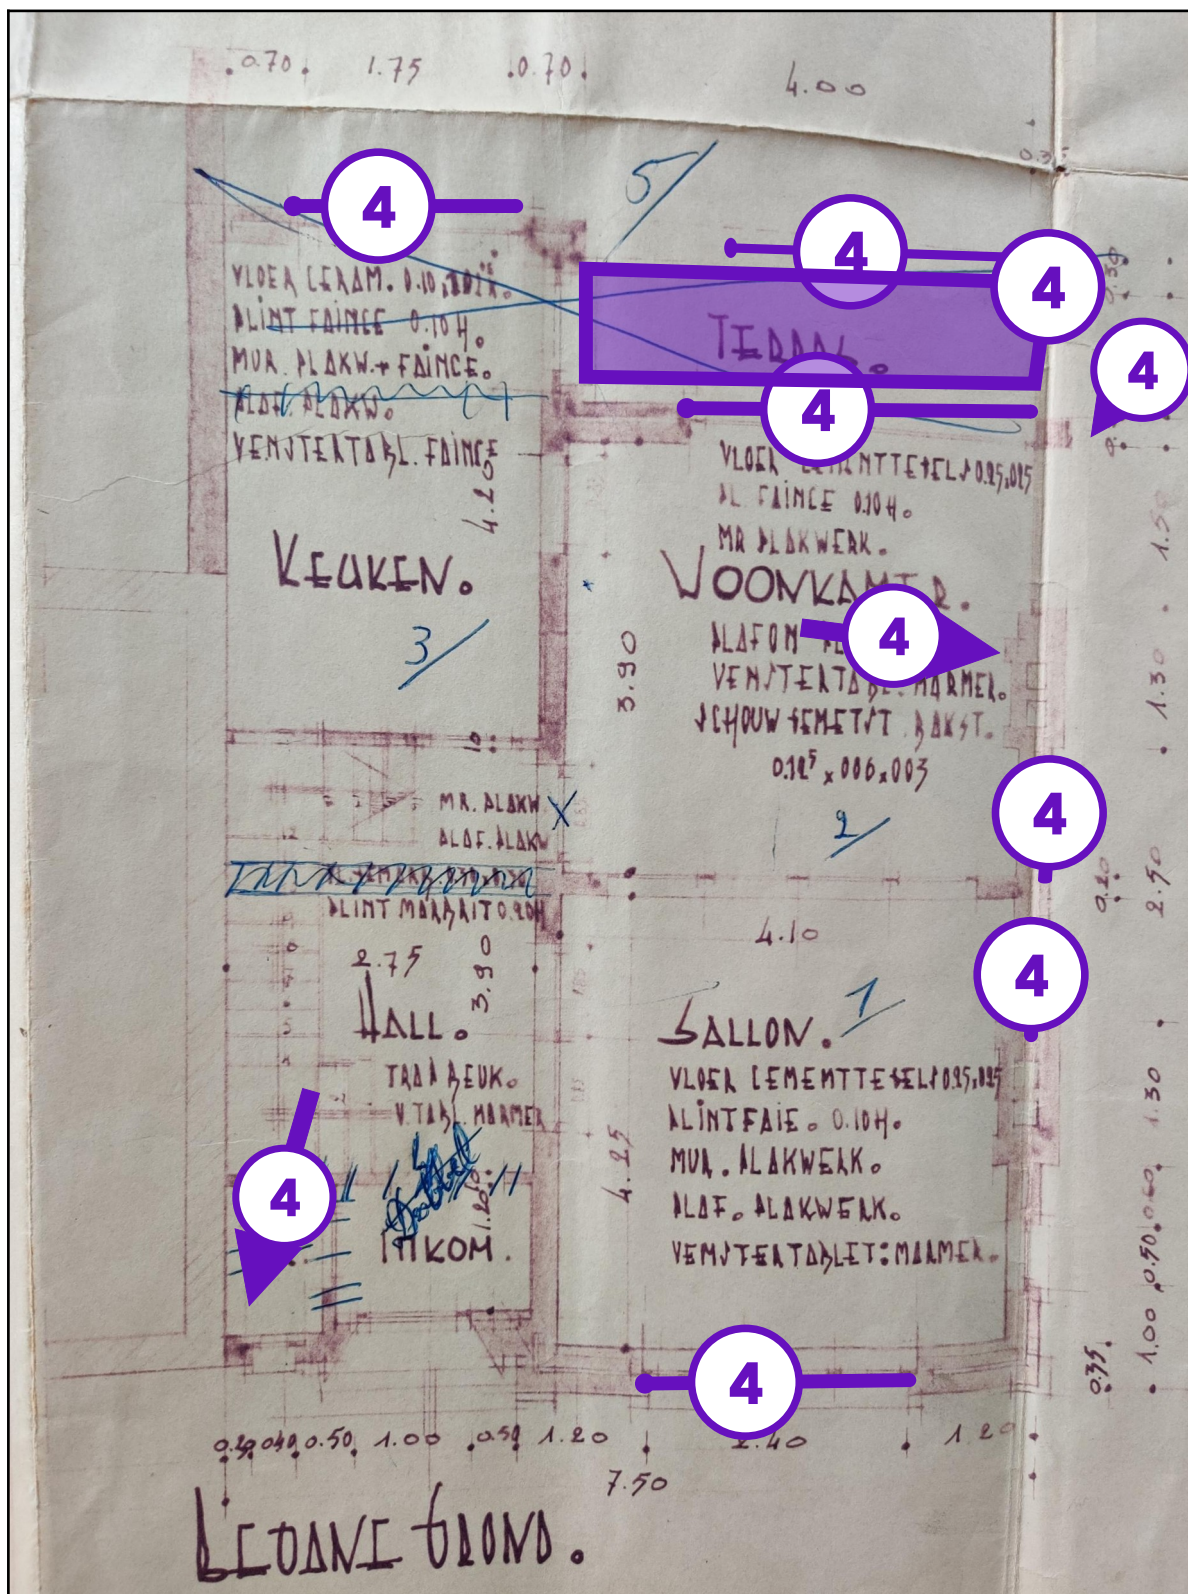 0.70 1.75 0.70
4.00
5
4
4
4
4
4
VLOER CERAM.
PLINT FAINCE 0.10 H.
MUR. PLAKW. + FAINCE.
PLAF. PLAKW.
VENSTERTABL. FAINCE
4.20
KEUKEN.
3
TERRAS.
VLOER CEMENTTEGELS 0.25,025
PL. FAINCE 0.10 H.
MR PLAKWERK.
WOONKAMER.
4
PLAFON
VENSTERTABL. MARMER.
SCHOUW GEMETST BAKST.
0.18⁵ x 006 x 003
3.90
2
1.30
4
10
MR. PLAKW
PLAF. PLAKW
PLINT MARBRIT 0.20H
0.20
2.50
4
4.10
2.75
3.90
HALL.
TRAP BEUK.
V. TABL. MARMER
4
INKOM.
1.20
SALLON. 1
VLOER CEMENTTEGELS 0.25,025
PLINT FAIE. 0.10H.
MUR. PLAKWERK.
PLAF. PLAKWERK.
VENSTERTABLET: MARMER.
4.25
1.30
0.60
0.50
1.00
0.35
4
0.20 040 0.50 1.00 0.50 1.20 2.40 1.20
7.50
BEDANE GROND.